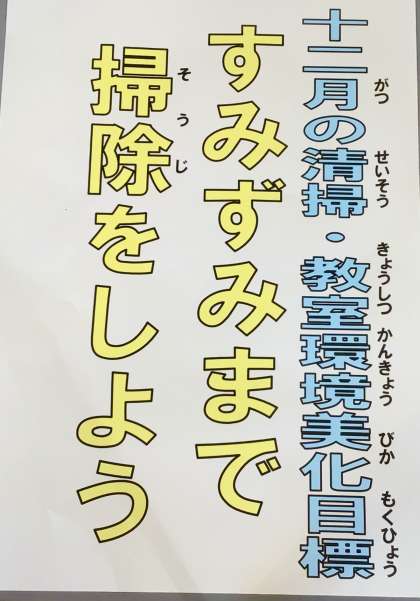 十二月の清掃・教室環境美化目標
がつ せいそう きょうしつ かんきょう びか もくひょう
すみずみまで
掃除をしよう
そうじ